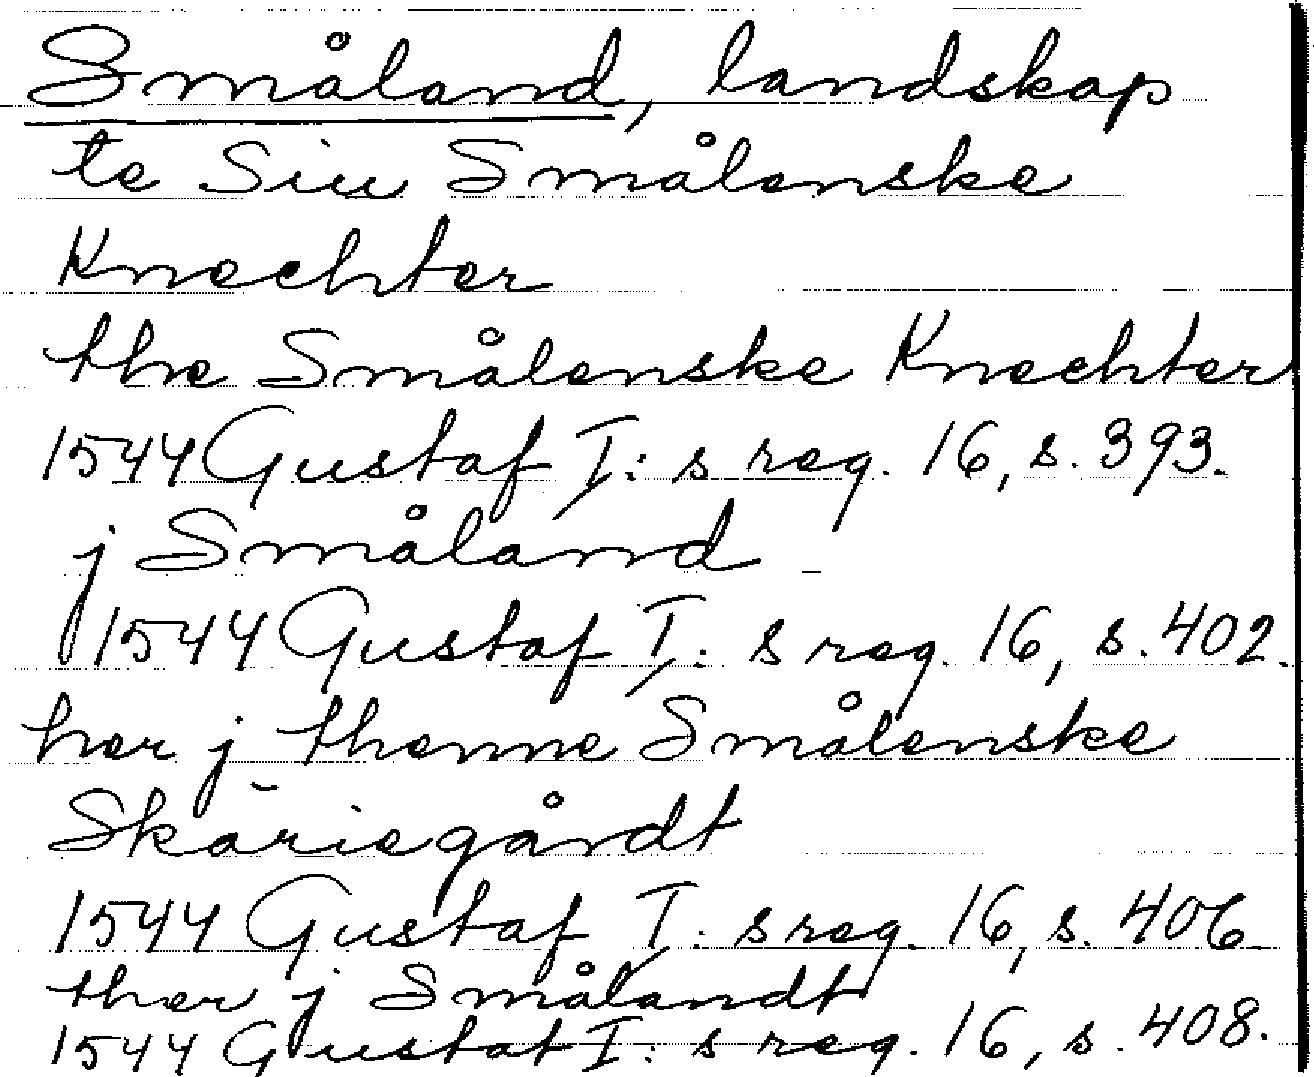 Småland, landskap
te Siu Smålenske
Knechter
the Smålenske Knechter
1544 Gustaf I:s reg. 16, s. 393.
j Småland
1544 Gustaf I:s reg. 16, s. 402.
her j thenne Smålenske
Skäriegårdt
1544 Gustaf I:s reg. 16, s. 406
ther j Smålandt
1544 Gustaf I:s reg. 16, s. 408.